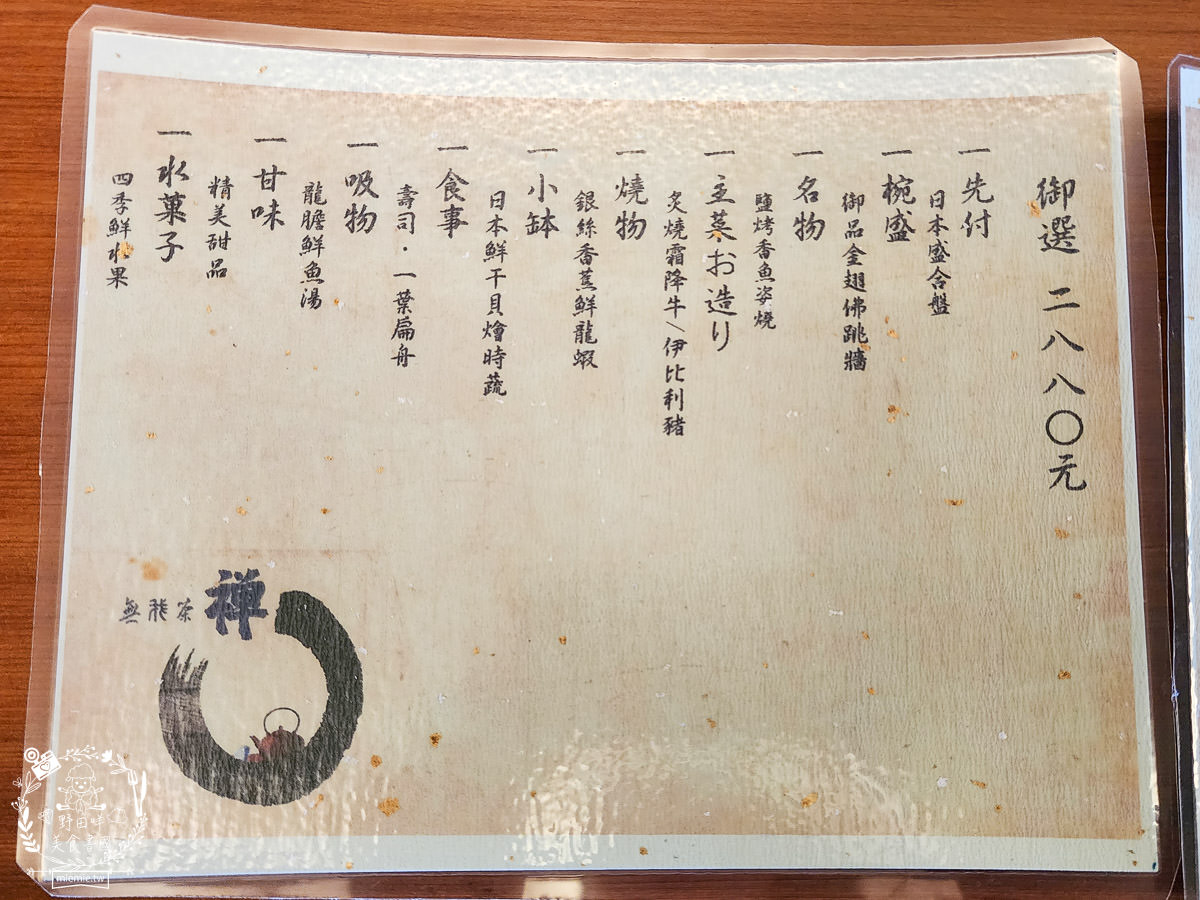 御選 二八八〇元
一先付
日本盛合盤
一椀盛
御品金翅佛跳牆
一名物
鹽烤香魚姿燒
一主菜お造り
炙燒霜降牛\伊比利豬
一燒物
銀絲香蕉鮮龍蝦
一小缽
日本鮮干貝燴時蔬
一食事
壽司·一葉扁舟
一吸物
龍膽鮮魚湯
一甘味
精美甜品
一水菓子
四季鮮水果
禅
茶
無
野田咩
美食
miemie.tw